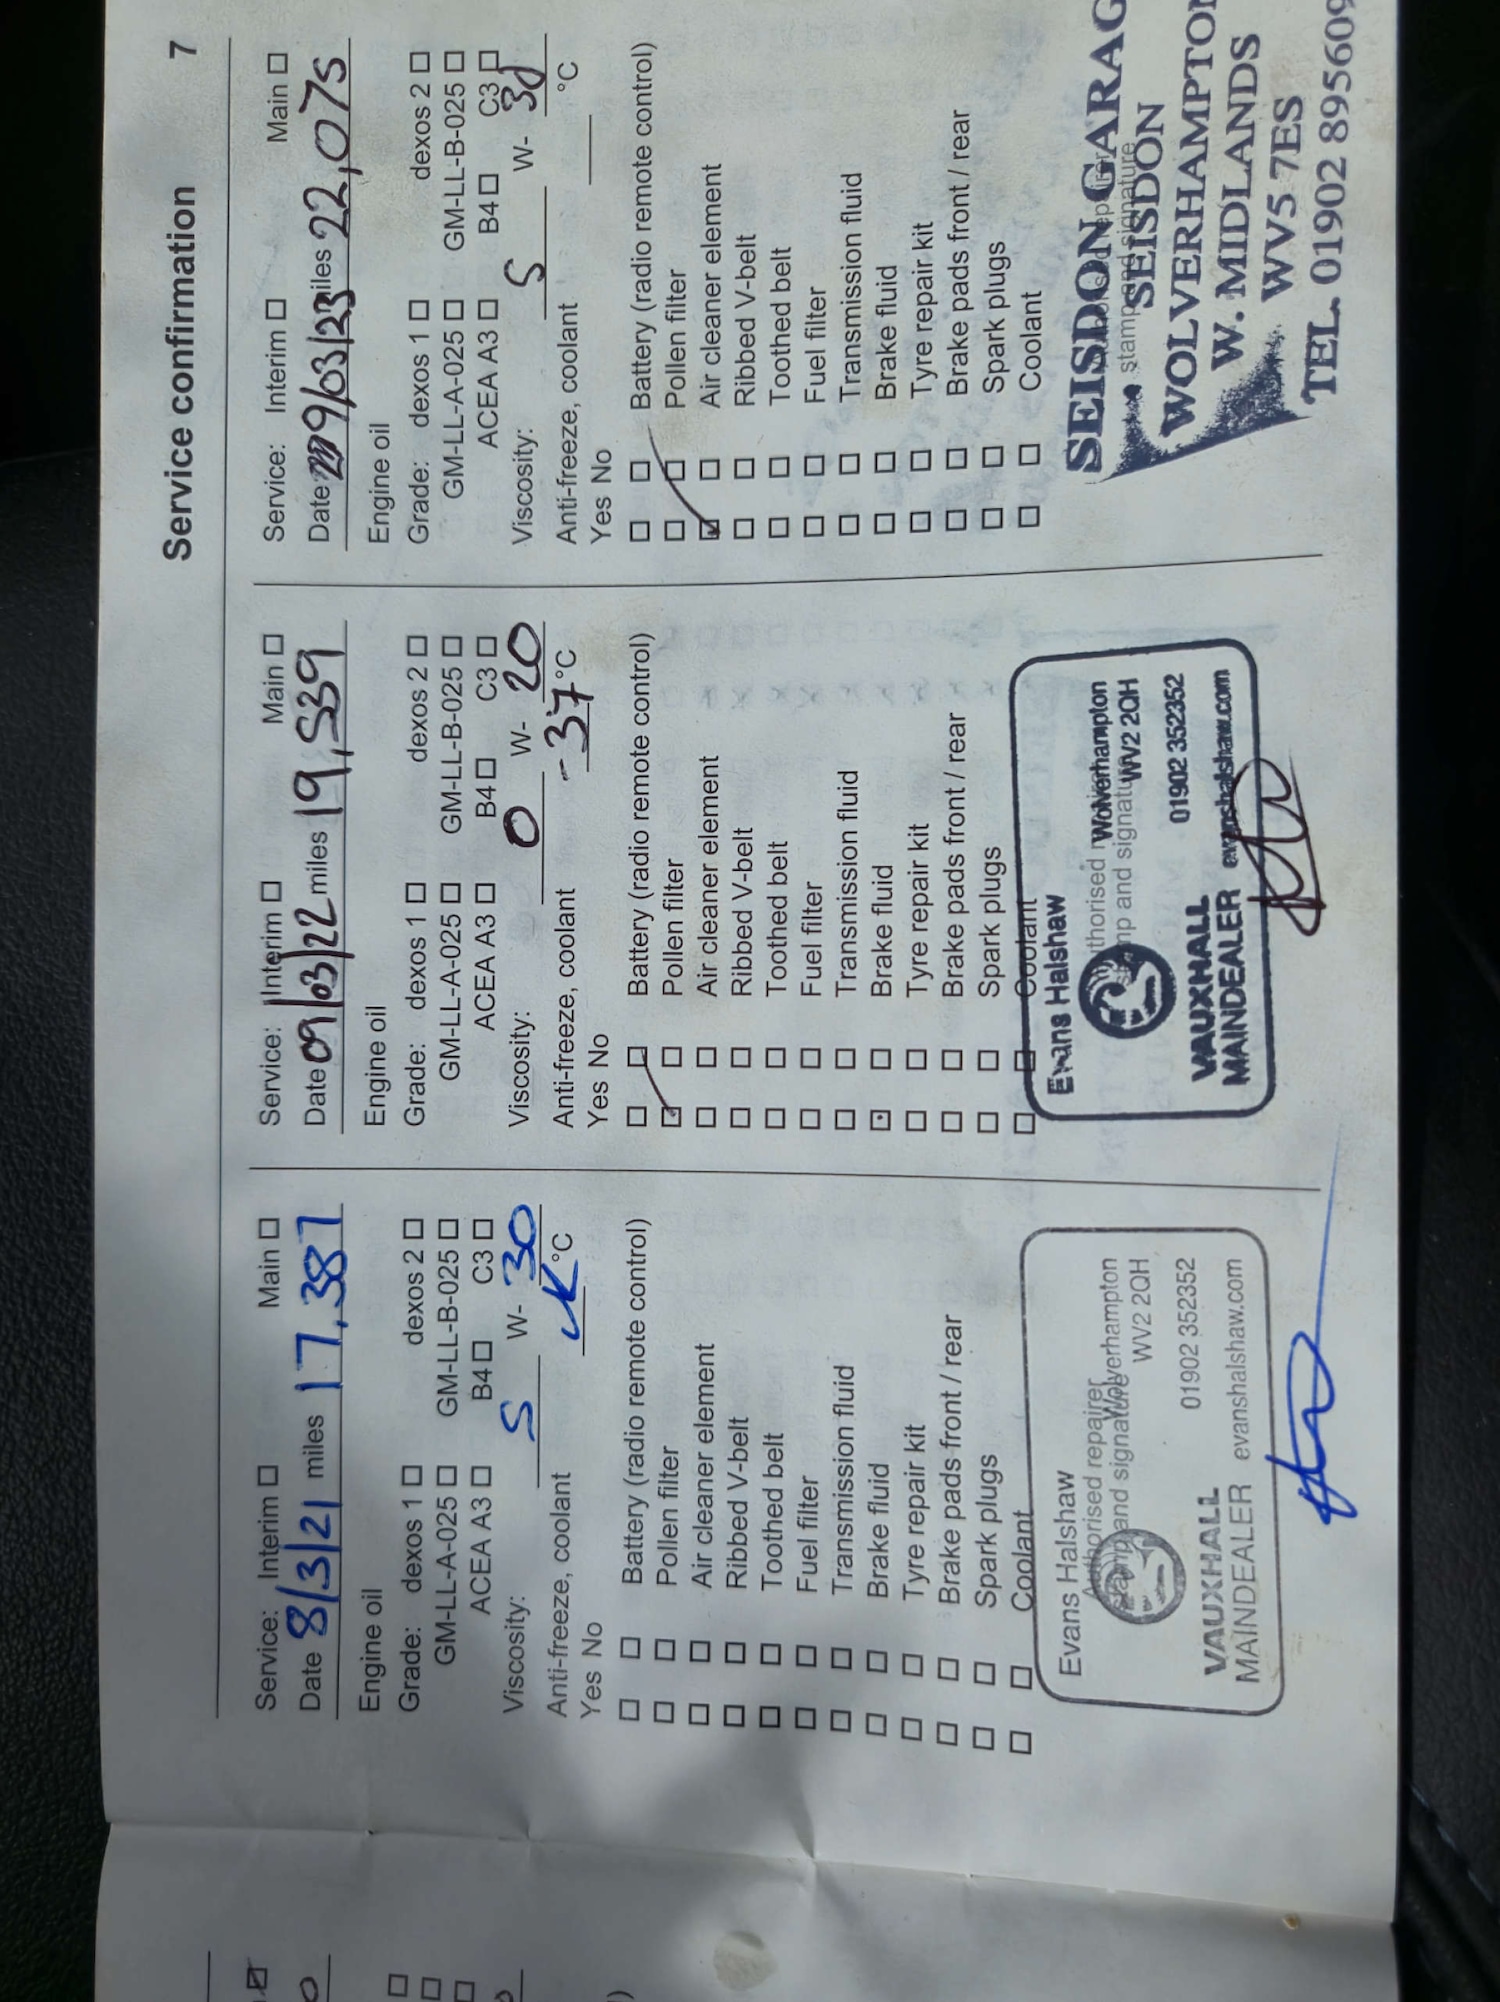 Service confirmation 7
Service: Interim ☐ Main ☐
Date 8/3/21 miles 17,387
Engine oil
Grade: dexos 1 ☐ dexos 2 ☐
GM-LL-A-025 ☐ GM-LL-B-025 ☐
ACEA A3 ☐ B4 ☐ C3 ☐
Viscosity: 5 W- 30
Anti-freeze, coolant °C
Yes No
☐ ☐ Battery (radio remote control)
☐ ☐ Pollen filter
☐ ☐ Air cleaner element
☐ ☐ Ribbed V-belt
☐ ☐ Toothed belt
☐ ☐ Fuel filter
☐ ☐ Transmission fluid
☐ ☐ Brake fluid
☐ ☐ Tyre repair kit
☐ ☐ Brake pads front / rear
☐ ☐ Spark plugs
☐ ☐ Coolant
Evans Halshaw
Authorised repairer Wolverhampton
stamp and signature WV2 2QH
01902 352352
VAUXHALL
MAINDEALER evanshalshaw.com
Service: Interim ☐ Main ☐
Date 09/03/22 miles 19,539
Engine oil
Grade: dexos 1 ☐ dexos 2 ☐
GM-LL-A-025 ☐ GM-LL-B-025 ☐
ACEA A3 ☐ B4 ☐ C3 ☐
Viscosity: 0 W- 20
Anti-freeze, coolant -37 °C
Yes No
☐ ☐ Battery (radio remote control)
☑ ☐ Pollen filter
☐ ☐ Air cleaner element
☐ ☐ Ribbed V-belt
☐ ☐ Toothed belt
☐ ☐ Fuel filter
☐ ☐ Transmission fluid
☐ ☐ Brake fluid
☐ ☐ Tyre repair kit
☐ ☐ Brake pads front / rear
☐ ☐ Spark plugs
☐ ☐ Coolant
Evans Halshaw
Wolverhampton
and signature WV2 2QH
01902 352352
VAUXHALL
MAINDEALER evanshalshaw.com
Service: Interim ☐ Main ☐
Date 29/03/23 miles 22,075
Engine oil
Grade: dexos 1 ☐ dexos 2 ☐
GM-LL-A-025 ☐ GM-LL-B-025 ☐
ACEA A3 ☐ B4 ☐ C3 ☐
Viscosity: 5 W- 30
Anti-freeze, coolant °C
Yes No
☐ ☐ Battery (radio remote control)
☐ ☐ Pollen filter
☑ ☐ Air cleaner element
☐ ☐ Ribbed V-belt
☐ ☐ Toothed belt
☐ ☐ Fuel filter
☐ ☐ Transmission fluid
☐ ☐ Brake fluid
☐ ☐ Tyre repair kit
☐ ☐ Brake pads front / rear
☐ ☐ Spark plugs
☐ ☐ Coolant
SEISDON GARAG
stamp and signature
SEISDON
WOLVERHAMPTON
W. MIDLANDS
WV5 7ES
TEL. 01902 895609